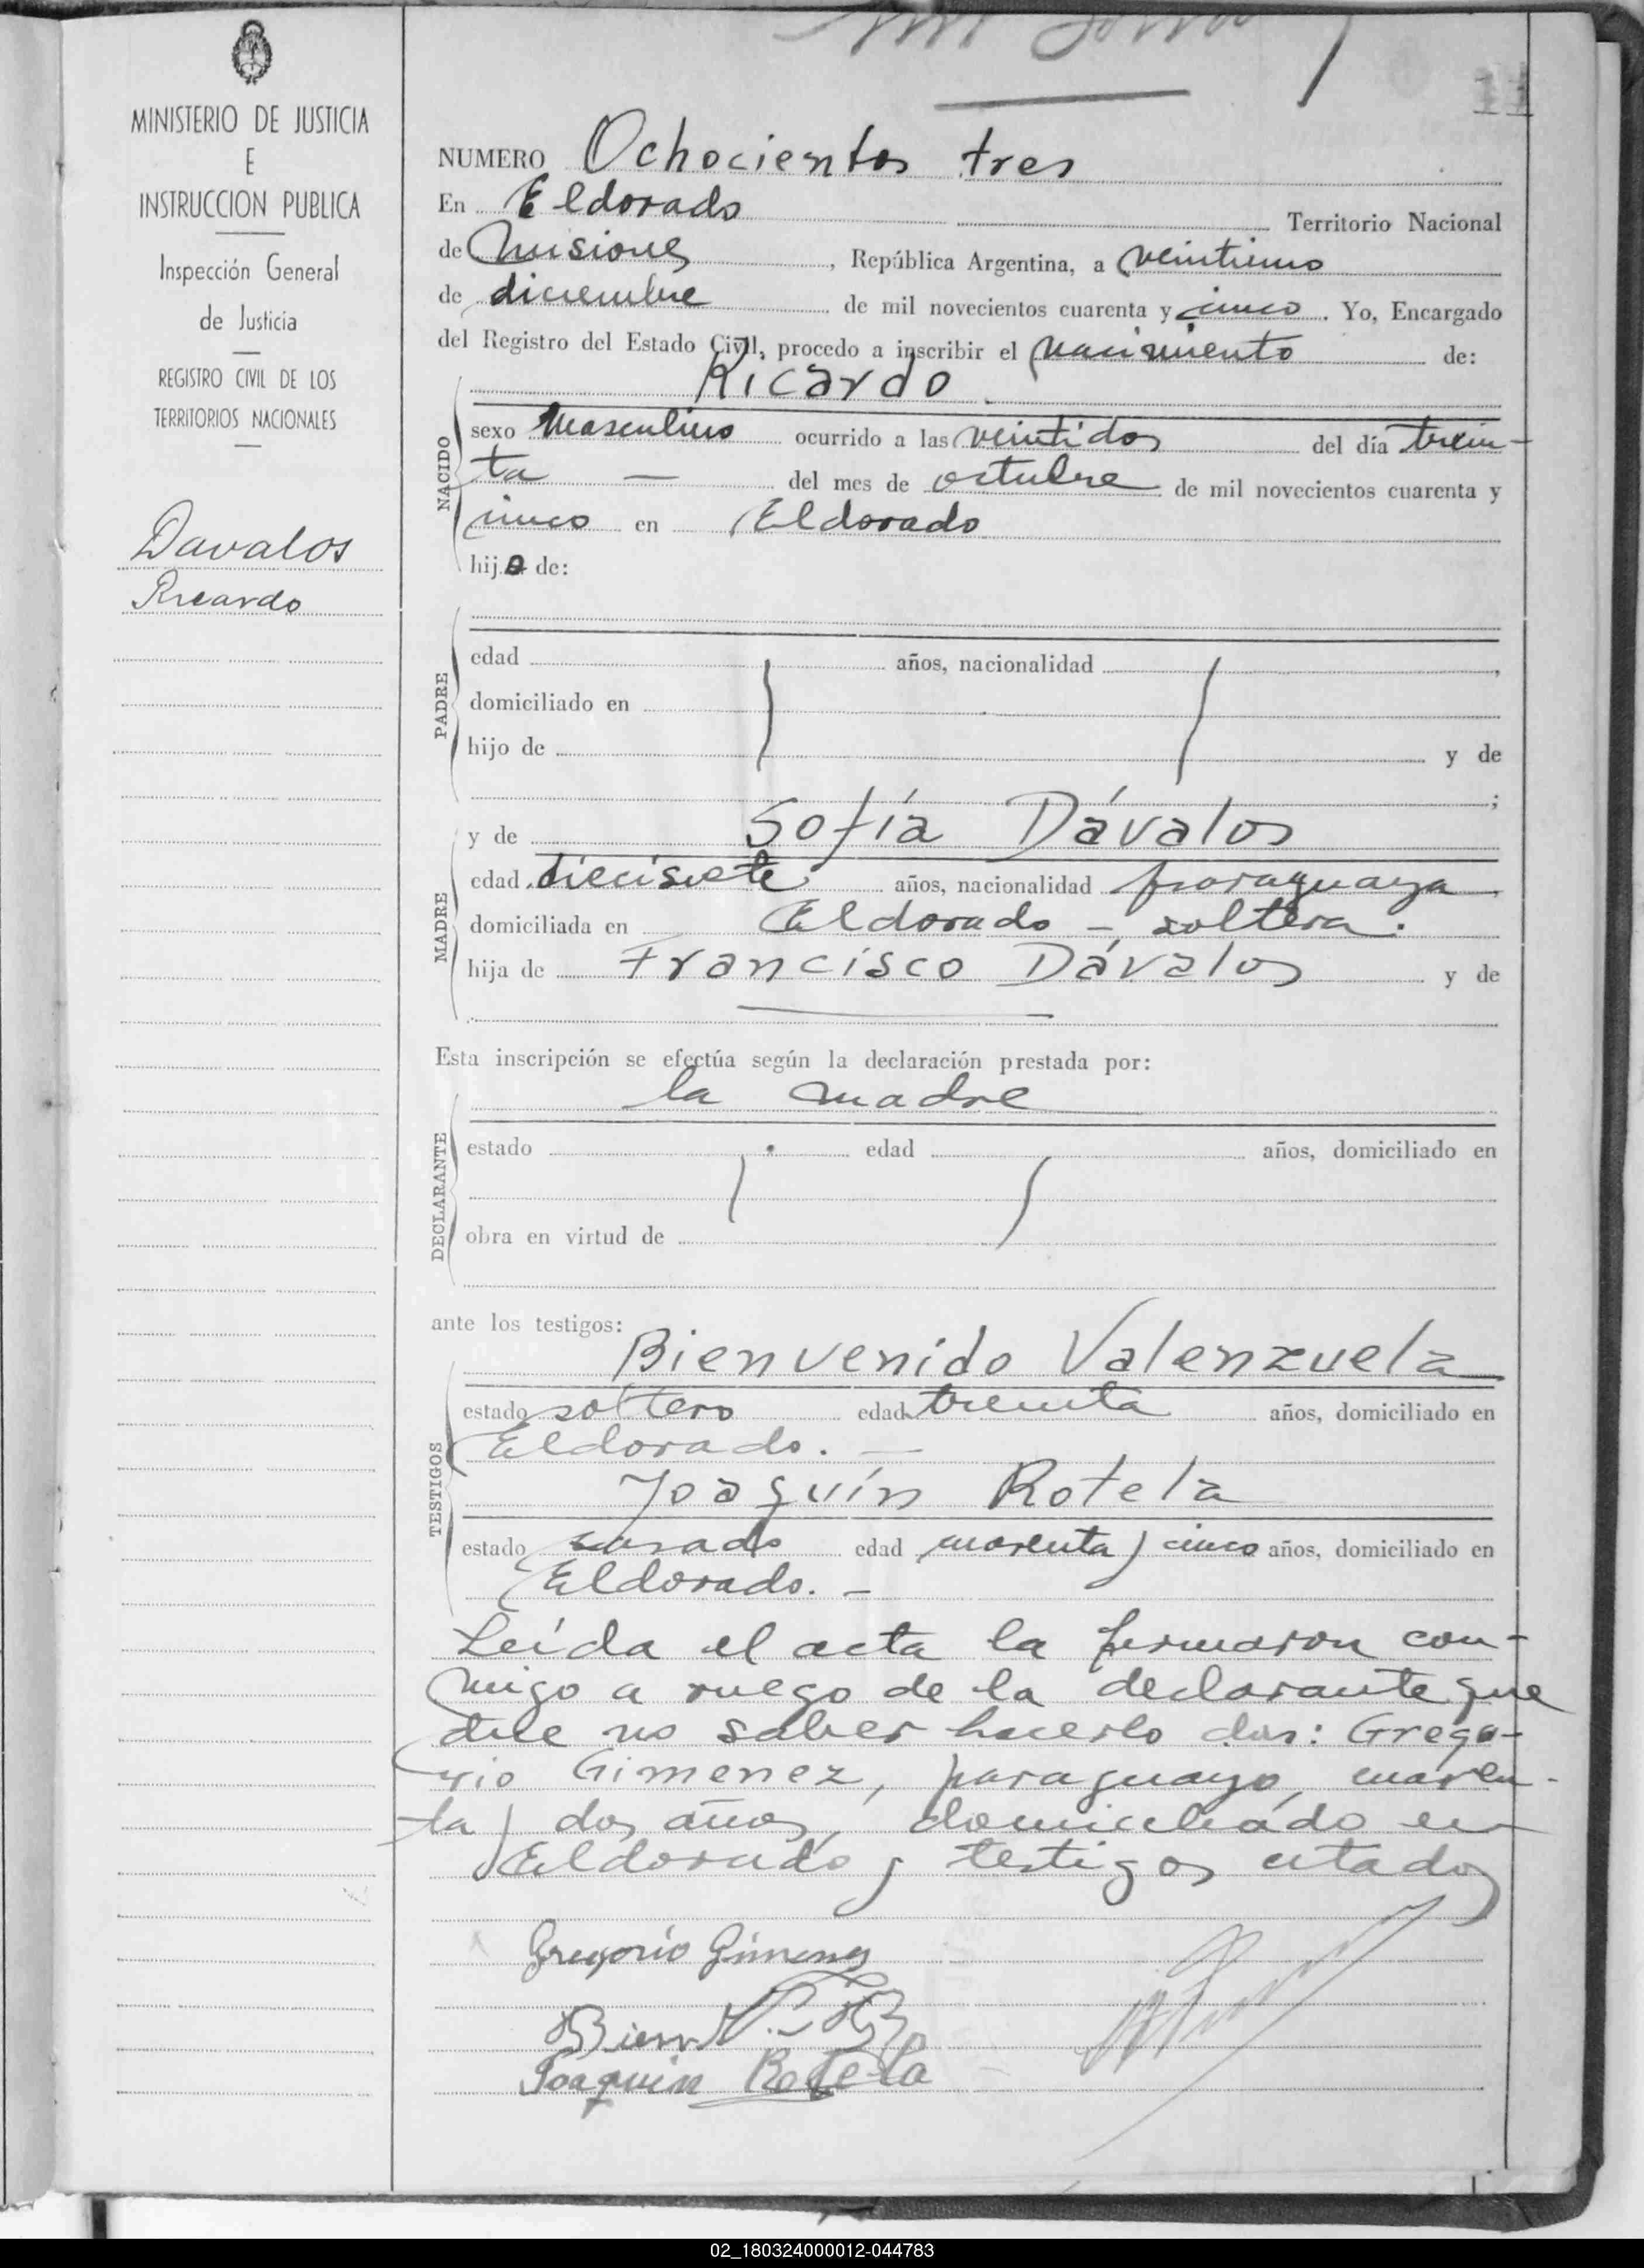 11
MINISTERIO DE JUSTICIA
E
INSTRUCCION PUBLICA
Inspección General
de Justicia
REGISTRO CIVIL DE LOS
TERRITORIOS NACIONALES
Davalos
Ricardo
NUMERO Ochocientos tres
En Eldorado Territorio Nacional
de Misiones, República Argentina, a veintiuno
de diciembre de mil novecientos cuarenta y cinco. Yo, Encargado
del Registro del Estado Civil, procedo a inscribir el nacimiento de:
Ricardo
NACIDO
sexo Masculino ocurrido a las veintidos del día trein-
ta — del mes de octubre de mil novecientos cuarenta y
cinco en Eldorado
hijo de:
PADRE
edad años, nacionalidad ,
domiciliado en
hijo de y de
;
y de Sofía Dávalos
MADRE
edad diecisiete años, nacionalidad paraguaya
domiciliada en Eldorado - soltera.
hija de Francisco Dávalos y de
Esta inscripción se efectúa según la declaración prestada por:
la madre
DECLARANTE
estado edad años, domiciliado en
obra en virtud de
ante los testigos:
Bienvenido Valenzuela
TESTIGOS
estado soltero edad treinta años, domiciliado en
Eldorado. —
Joaquín Rotela
estado casado edad cuarenta y cinco años, domiciliado en
Eldorado. -
Leída el acta la firmaron con-
migo a ruego de la declarante que
dice no saber hacerlo don: Grego-
rio Gimenez, paraguayo, cuaren-
ta y dos años, domiciliado en
Eldorado y testigos citados
Gregorio Gimenez
Joaquin Rotela
02_180324000012-044783